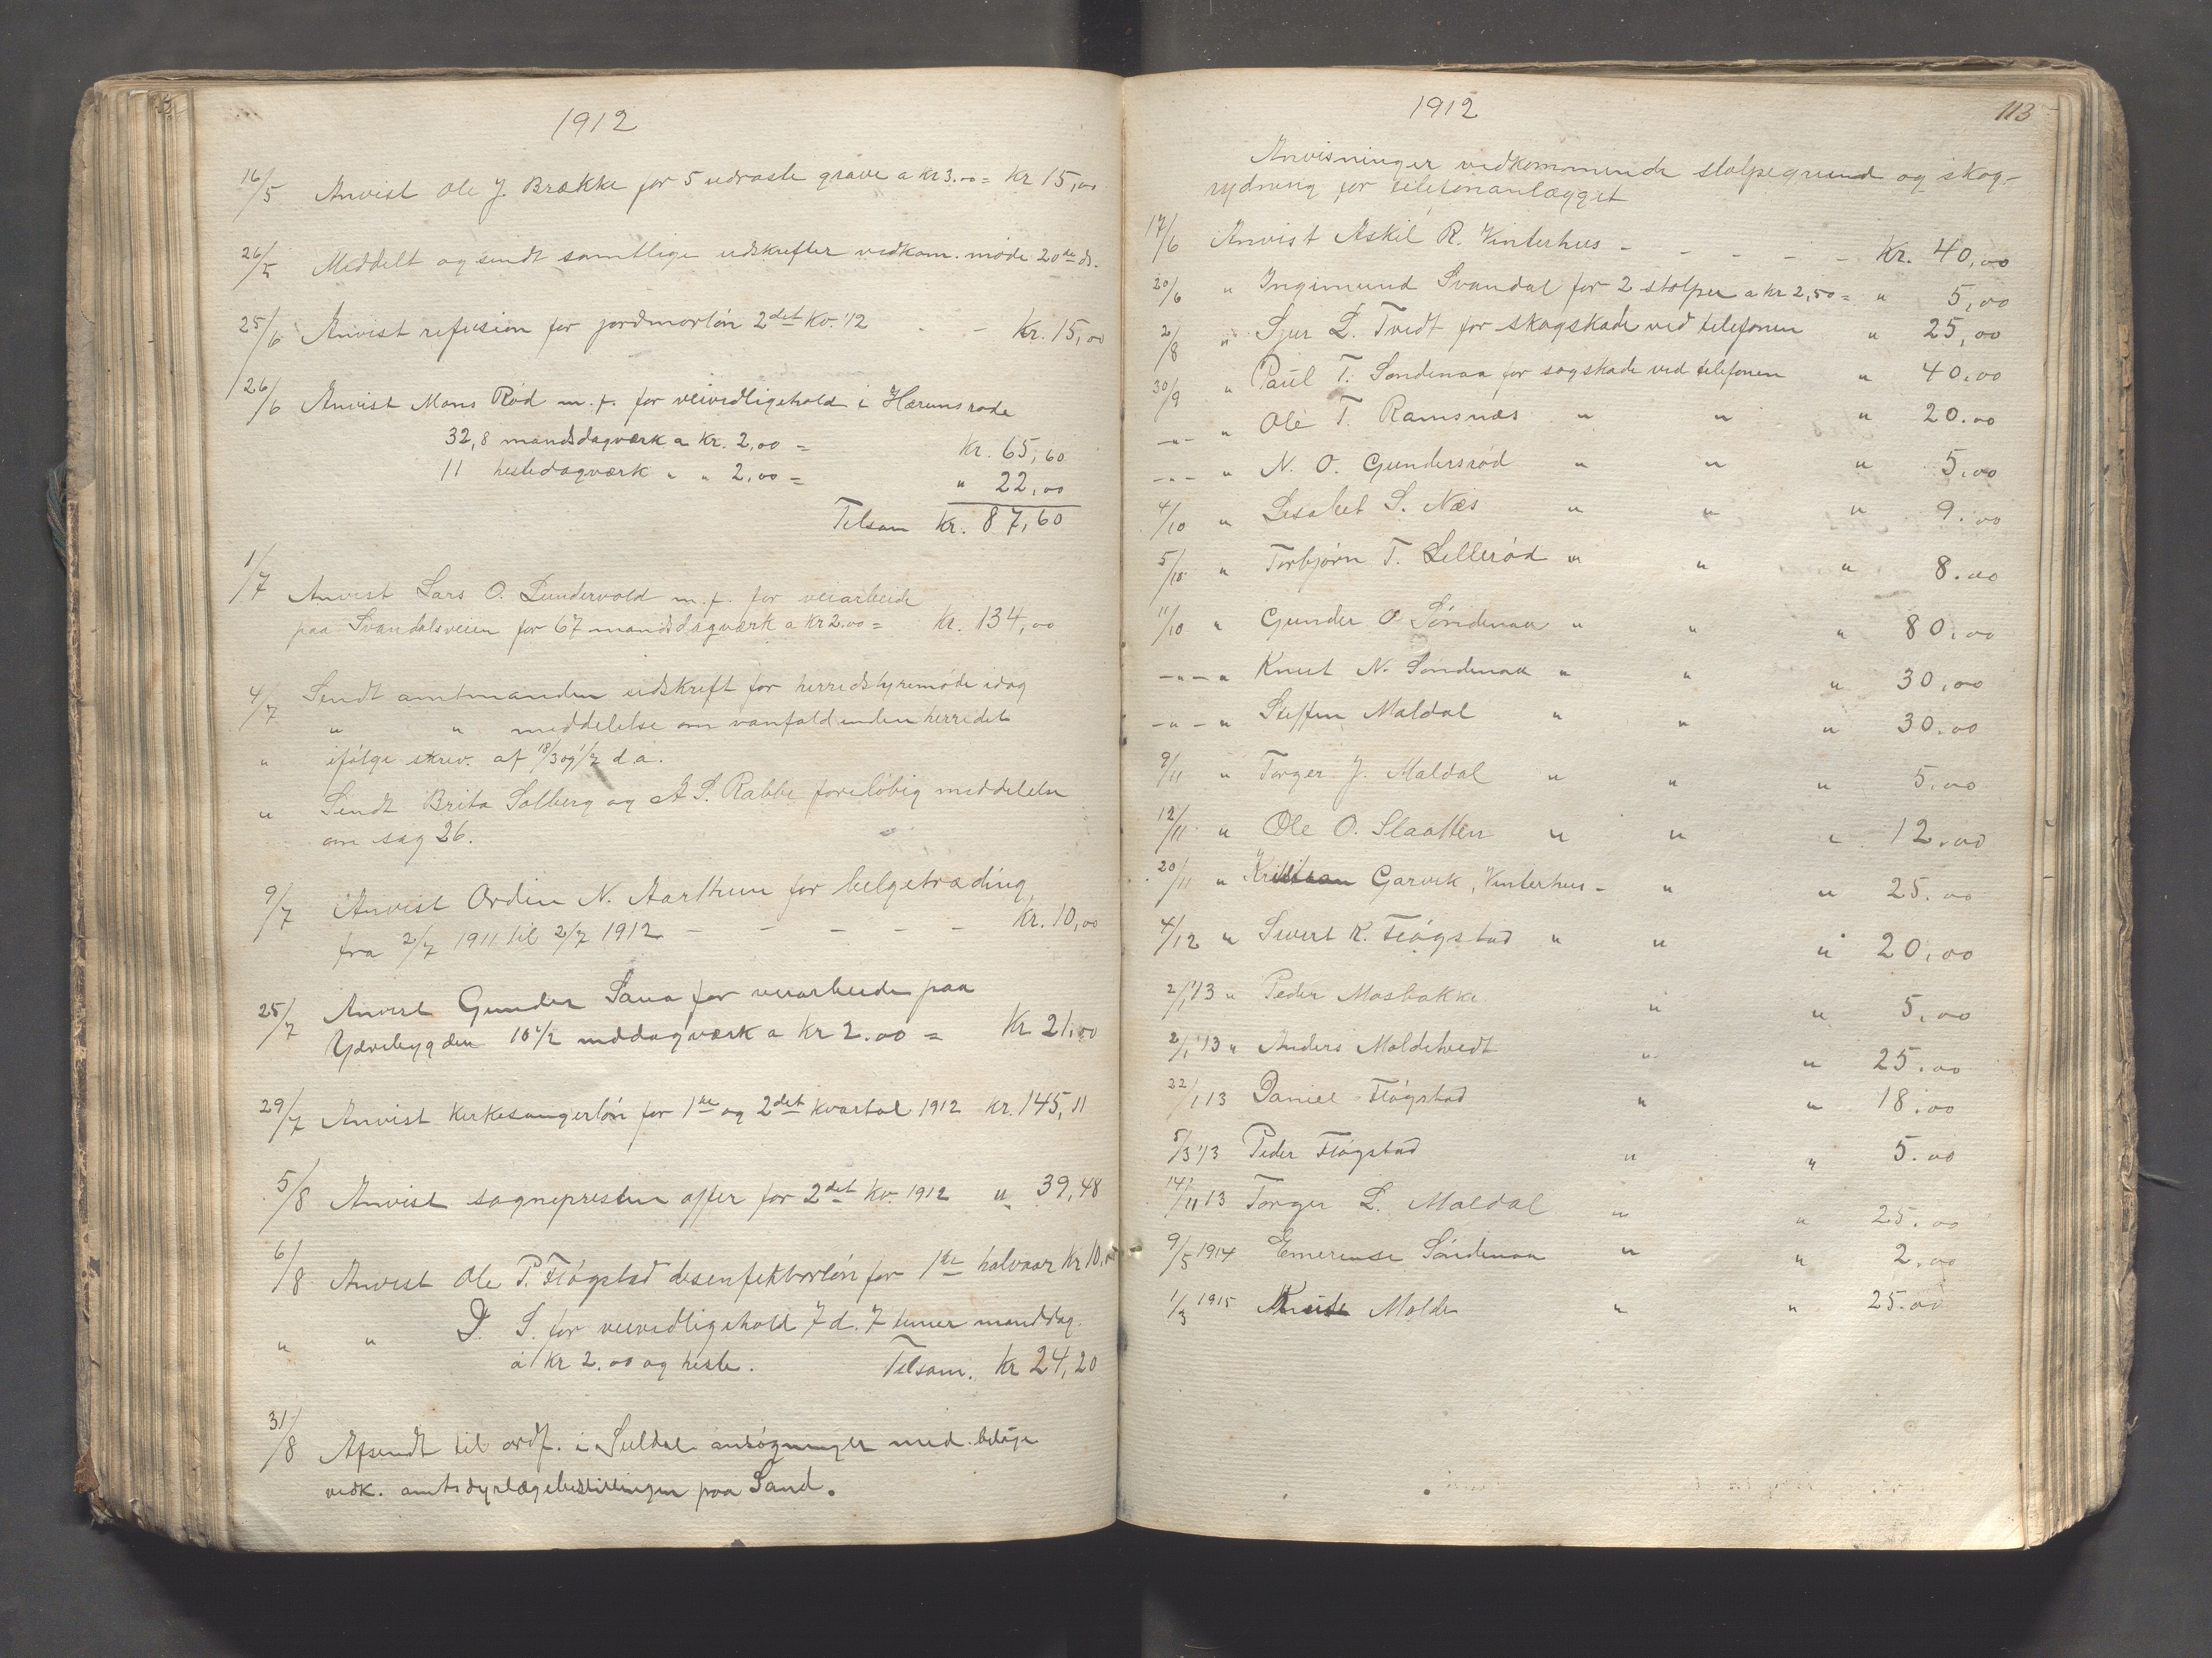 1912
16/5 Anvist Ole J. Brække for 5 udraste grave a kr 3.00 = kr 15,00
26/5 Meddelt og sendt samtlige udskrifter vedkom. møde 20de ds.
25/6 Anvist refusion for jordmorløn 2det Kv. 12 - - Kr. 15,00
26/6 Anvist Mons Rød m. fl. for veivedligehold i Hærumsrode
32,8 mandsdagværk a Kr. 2,00 = Kr. 65,60
11 hestedagværk " " 2,00 = " 22,00
Tilsam Kr. 87,60
1/7 Anvist Lars O. Lundervold m. fl. for veiarbeide
paa Svandalsveien for 67 mandsdagværk a kr 2.00 = Kr. 134,00
4/7 Sendt amtmanden udskrift for herredstyremøde idag
" " meddelelse om vanfald inden herredet
" ifølge skriv. af 18/3 og 1/7 d.a.
" Sendt Brita Solberg og A. S. Rabbe foreløbig meddelelse
om sag 26.
9/7 Anvist Ordin N. Aarthun for belgetræding
fra 2/7 1911 til 2/7 1912 - - - - - Kr. 10,00
25/7 Anvist Gunder Saua for veiarbeide paa
Ydrebygden 10 1/2 mddagværk a kr 2.00 = Kr 21,00
29/7 Anvist Kirkesangerløn for 1ste og 2det kvartal 1912 kr. 145,11
5/8 Anvist sognepresten offer for 2det Kv. 1912 " 39,48
6/8 Anvist Ole P. Fløgstad desenfektorløn for 1ste halvaar Kr 10,00
" " D. S. for veivedligehold 7 d. 7 timer manddag.
a kr 2.00 og heste. Tilsam. kr 24,20
31/8 Afsendt til ordf. i Suldal ansøgninger med bilage
vedk. amtsdyrlægebestillingen paa Sand.
1912 113
Anvisninger vedkommende stolpegrund og skog-
rydning for telefonanlægget
17/6 Anvist Askil R. Vinterhus - - - - - Kr. 40,00
20/6 " Ingimund Svandal for 2 stolper a kr 2,50 = " 5,00
2/8 " Sjur L. Tvedt for skogskade ved telefonen " 25,00
30/9 " Paul T. Søndenaa for sogskade ved telefonen " 40.00
-"- " Ole T. Ramsnæs " " " 20.00
-"- " N. O. Gundersrød " " " 5.00
4/10 " Lisabet S. Næs " " " 9.00
5/10 " Torbjørn T. Lillerød " " " 8.00
11/10 " Gunder O Søndenaa " " " 80.00
-"- " Knut N. Søndenaa " " " 30,00
-"- " Steffen Maldal " " " 30.00
9/11 " Torger J. Maldal " " " 5.00
12/11 " Ole O. Slaatten " " " 12.00
20/11 " Kristian Garvik, Vinterhus - " " 25.00
4/12 " Sivert K. Fløgstad " " " 20,00
2/1 '13 " Peder Mosbakke " " 5,00
2/1 '13 " Anders Moldetvedt " " 25.00
22/1 13 Daniel Fløgstad " " 18.00
5/3 '13 Peder Fløgstad " " 5.00
14/11 13 Torger L. Maldal " " 25.00
9/5 1914 Emerense Søndenaa " " 2.00
1/3 1915 Knut Molde " " 25.00